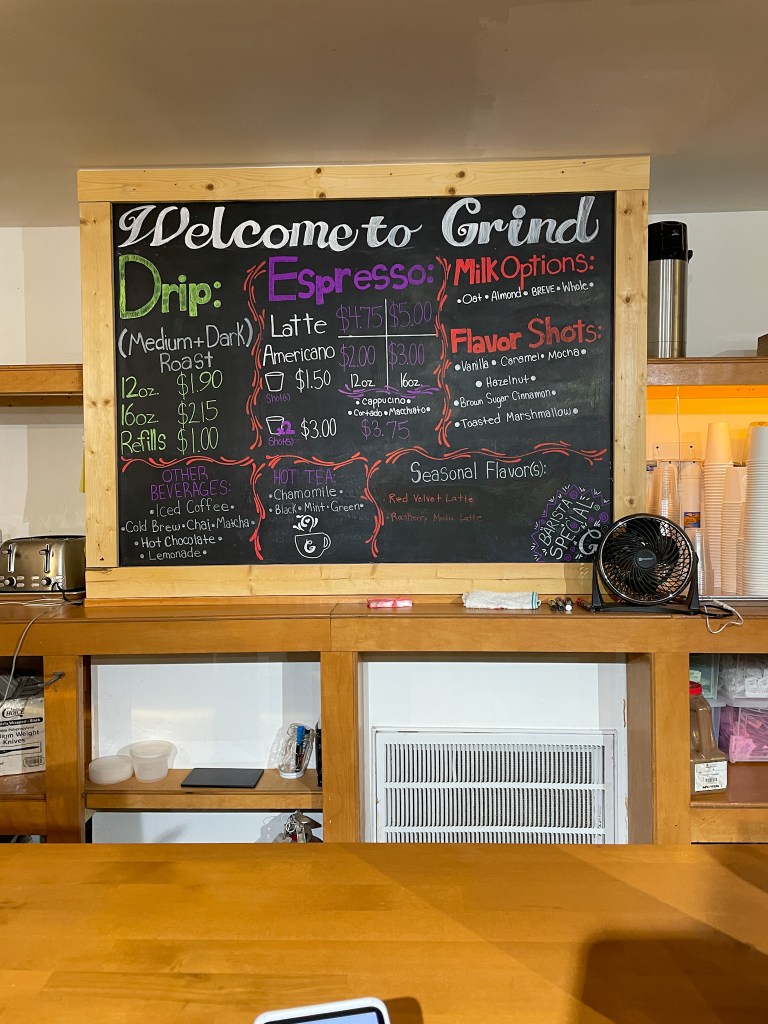 Welcome to Grind
Drip:
(Medium + Dark)
Roast
12oz. $1.90
16oz $2.15
Refills $1.00
Espresso:
Latte $4.75 $5.00
Americano $2.00 $3.00
12oz 16oz
$1.50
Shot(s)
• Cappucino •
• Cortado • Macchiato •
$3.75
2
Shot(s)
$3.00
Milk Options:
• Oat • Almond • BREVE • Whole •
Flavor Shots:
• Vanilla • Caramel • Mocha •
• Hazelnut •
• Brown Sugar Cinnamon •
• Toasted Marshmallow •
OTHER
BEVERAGES:
• Iced Coffee
• Cold Brew • Chai • Matcha •
• Hot Chocolate •
• Lemonade •
HOT TEA:
Chamomile •
Black • Mint • Green •
Seasonal Flavor(s):
• Red Velvet Latte
BARISTA
SPECIAL
G
CHOICE
Weight
Knives